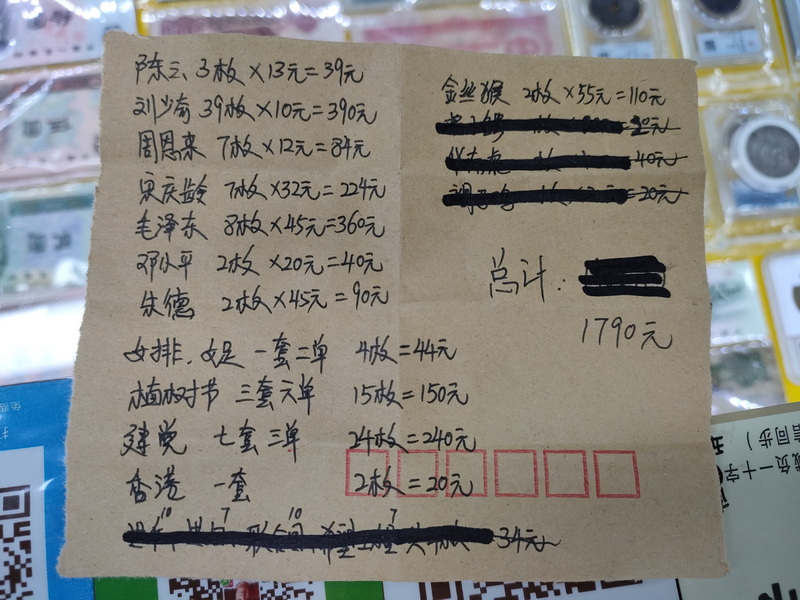 陈云 3枚×13元=39元
刘少奇 39枚×10元=390元
周恩来 7枚×12元=84元
宋庆龄 7枚×32元=224元
毛泽东 8枚×45元=360元
邓小平 2枚×20元=40元
朱德 2枚×45元=90元
女排、女足 一套二单 4枚=44元
植树节 三套六单 15枚=150元
建党 七套三单 24枚=240元
香港 一套 2枚=20元
34元
金丝猴 2枚×55元=110元
40元
20元
总计:
1790元